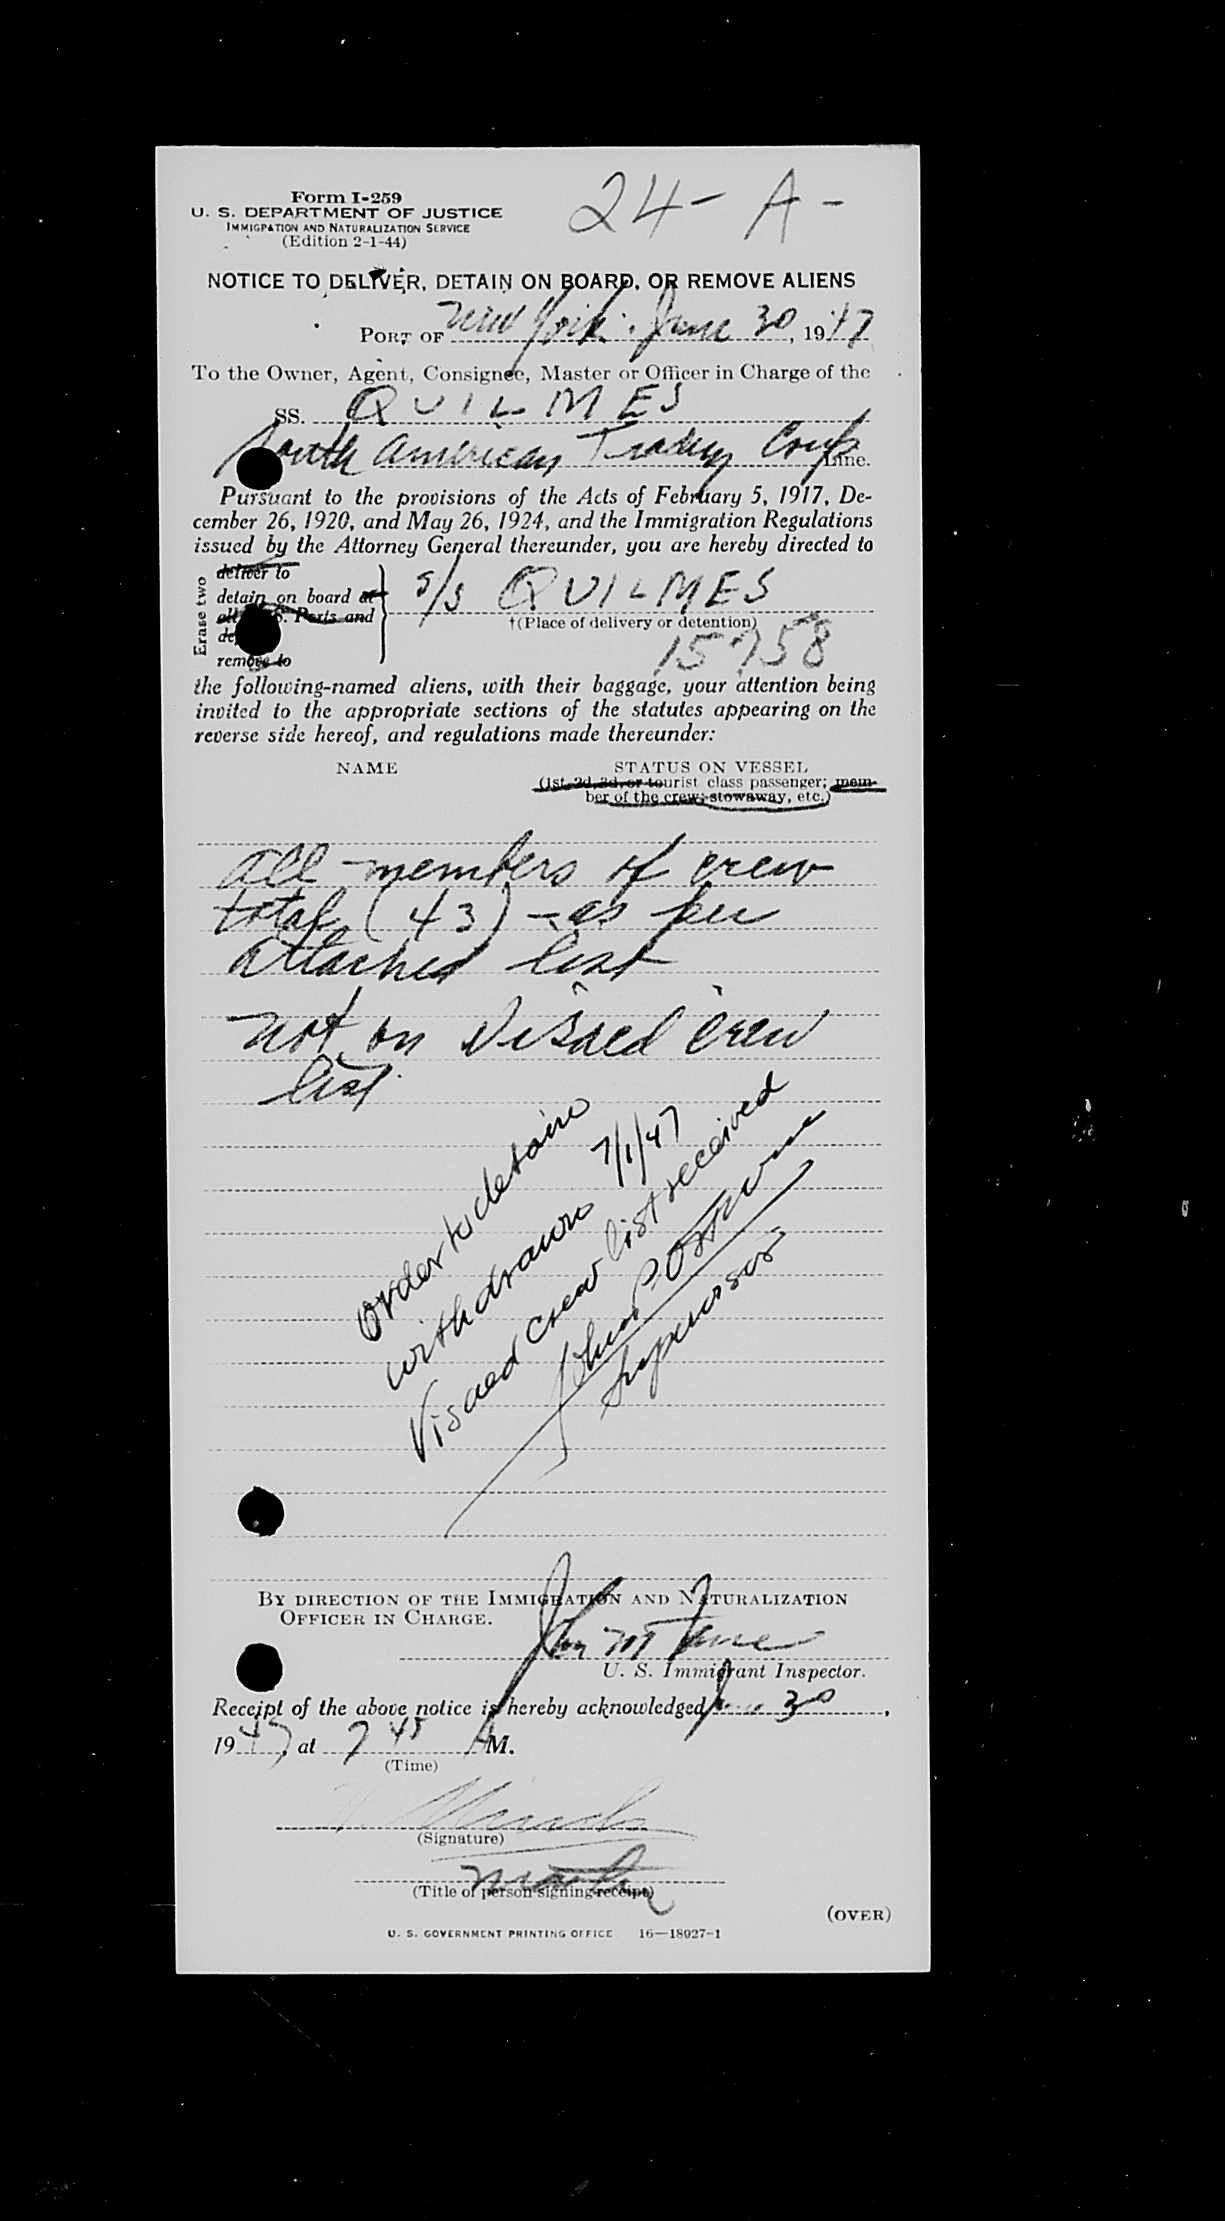 Form I-259
24- A-
U. S. DEPARTMENT OF JUSTICE
IMMIGRATION AND NATURALIZATION SERVICE
(Edition 2-1-44)
NOTICE TO DELIVER, DETAIN ON BOARD, OR REMOVE ALIENS
PORT OF New York. June 30, 1947
To the Owner, Agent, Consignee, Master or Officer in Charge of the
SS. QUILMES
South American Trading Corp Line.
Pursuant to the provisions of the Acts of February 5, 1917, De-
cember 26, 1920, and May 26, 1924, and the Immigration Regulations
issued by the Attorney General thereunder, you are hereby directed to
Erase two
deliver to
detain on board at
all S. Ports and
remove to
S/S QUILMES
†(Place of delivery or detention)
15758
the following-named aliens, with their baggage, your attention being
invited to the appropriate sections of the statutes appearing on the
reverse side hereof, and regulations made thereunder:
NAME STATUS ON VESSEL
(1st, 2d, 3d, or tourist class passenger; mem-
ber of the crew; stowaway, etc.)
all members of crew
total (43) - as per
attached list
not on visaed crew
list.
Order to detain
withdrawn 7/1/47
Visaed crew list received
John P.
Supervisor
BY DIRECTION OF THE IMMIGRATION AND NATURALIZATION
OFFICER IN CHARGE.
John
U. S. Immigrant Inspector.
Receipt of the above notice is hereby acknowledged June 30,
1947, at 7 45 AM.
(Time)
(Signature)
Master
(Title of person signing receipt)
(OVER)
U. S. GOVERNMENT PRINTING OFFICE 16—18027-1